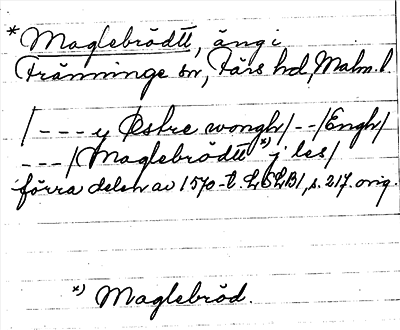 *Maglebrödtt, äng i
Tranninge sn, Färs hd, Malm. l.
/--- y Østre wongh/--/Engh/
---/Maglebrödtt x) j les/
förra delen av 1570-t. LSLB1, s. 217. orig.
x) Maglebröd.